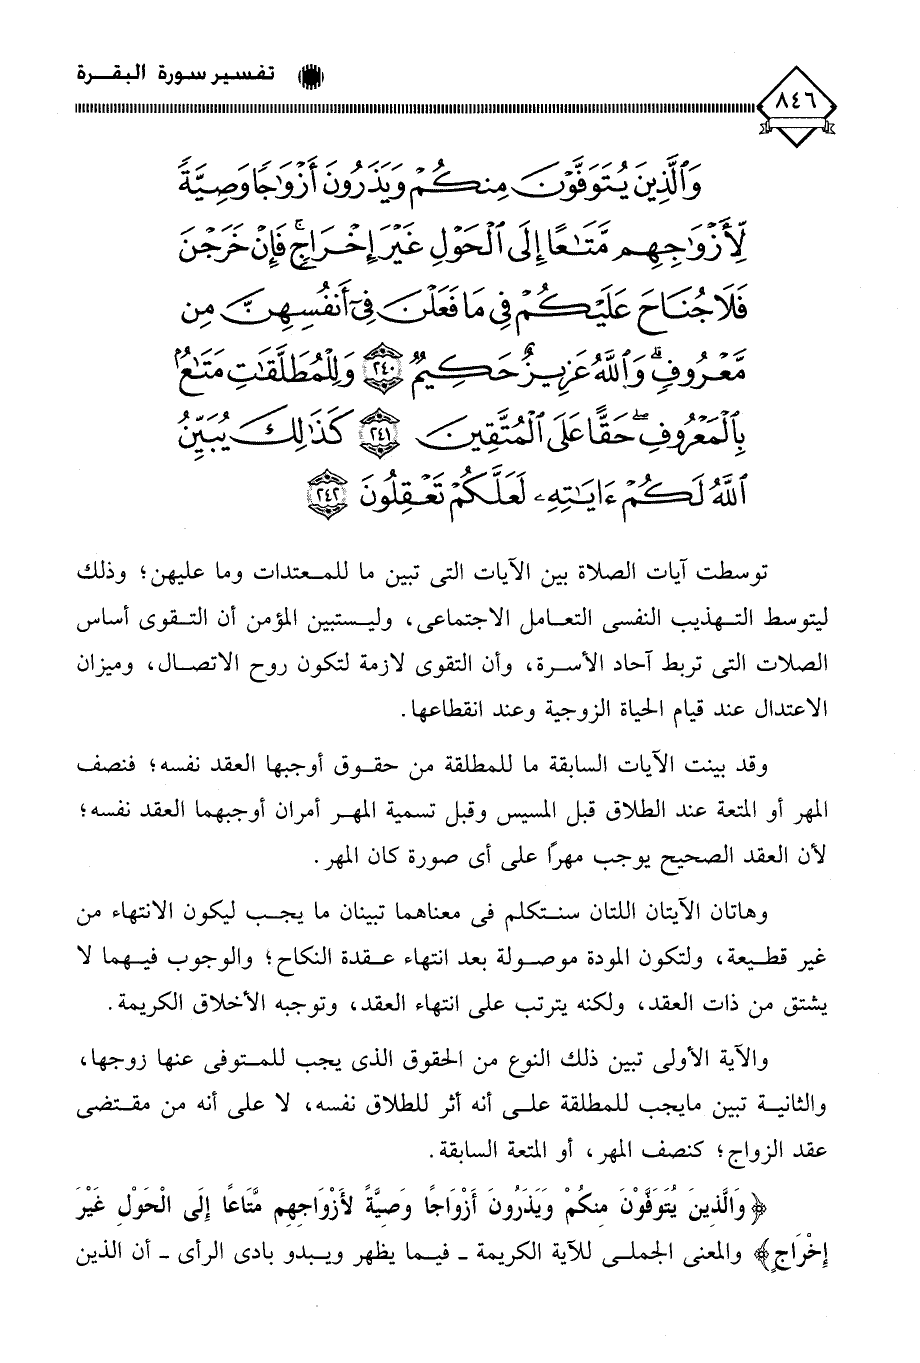 تفسير سورة البقرة
٨٤٦
وَٱلَّذِينَ يُتَوَفَّوْنَ مِنكُمْ وَيَذَرُونَ أَزْوَٰجًا وَصِيَّةً
لِّأَزْوَٰجِهِم مَّتَـٰعًا إِلَى ٱلْحَوْلِ غَيْرَ إِخْرَاجٍ ۚ فَإِنْ خَرَجْنَ
فَلَا جُنَاحَ عَلَيْكُمْ فِى مَا فَعَلْنَ فِىٓ أَنفُسِهِنَّ مِن
مَّعْرُوفٍ ۗ وَٱللَّهُ عَزِيزٌ حَكِيمٌ ٢٤٠ وَلِلْمُطَلَّقَـٰتِ مَتَـٰعٌۢ
بِٱلْمَعْرُوفِ ۖ حَقًّا عَلَى ٱلْمُتَّقِينَ ٢٤١ كَذَٰلِكَ يُبَيِّنُ
ٱللَّهُ لَكُمْ ءَايَـٰتِهِۦ لَعَلَّكُمْ تَعْقِلُونَ ٢٤٢
توسطت آيات الصلاة بين الآيات التى تبين ما للمعتدات وما عليهن؛ وذلك
ليتوسط التهذيب النفسى التعامل الاجتماعى، وليستبين المؤمن أن التقوى أساس
الصلات التى تربط آحاد الأسرة، وأن التقوى لازمة لتكون روح الاتصال، وميزان
الاعتدال عند قيام الحياة الزوجية وعند انقطاعها.
وقد بينت الآيات السابقة ما للمطلقة من حقوق أوجبها العقد نفسه؛ فنصف
المهر أو المتعة عند الطلاق قبل المسيس وقبل تسمية المهر أمران أوجبهما العقد نفسه؛
لأن العقد الصحيح يوجب مهرًا على أى صورة كان المهر.
وهاتان الآيتان اللتان سنتكلم فى معناهما تبينان ما يجب ليكون الانتهاء من
غير قطيعة، ولتكون المودة موصولة بعد انتهاء عقدة النكاح؛ والوجوب فيهما لا
يشتق من ذات العقد، ولكنه يترتب على انتهاء العقد، وتوجبه الأخلاق الكريمة.
والآية الأولى تبين ذلك النوع من الحقوق الذى يجب للمتوفى عنها زوجها،
والثانية تبين مايجب للمطلقة على أنه أثر للطلاق نفسه، لا على أنه من مقتضى
عقد الزواج؛ كنصف المهر، أو المتعة السابقة.
﴿وَالَّذِينَ يُتَوَفَّوْنَ مِنكُمْ وَيَذَرُونَ أَزْوَاجًا وَصِيَّةً لأَزْوَاجِهِم مَّتَاعًا إِلَى الْحَوْلِ غَيْرَ
إِخْرَاجٍ﴾ والمعنى الجملى للآية الكريمة - فيما يظهر ويبدو بادى الرأى - أن الذين